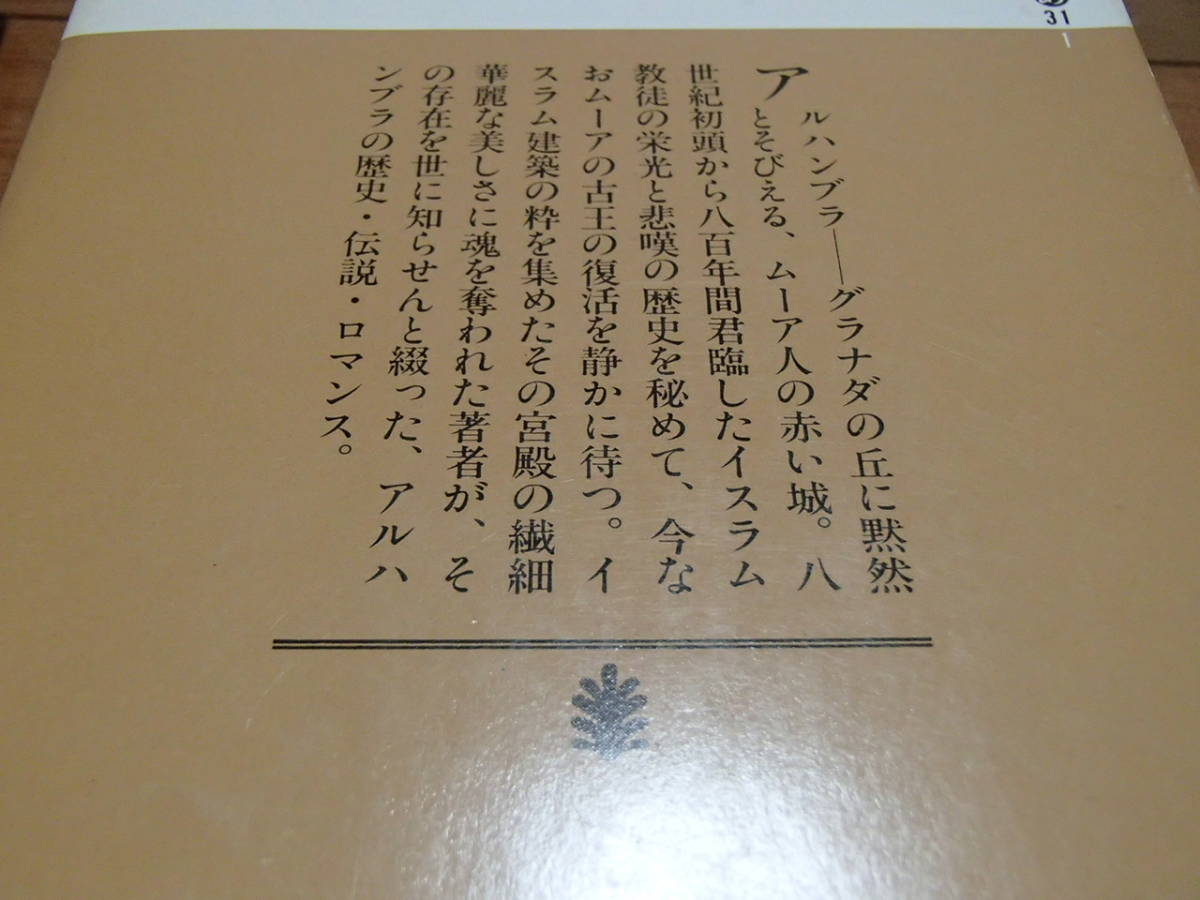 31
1
アルハンブラ──グラナダの丘に黙然
とそびえる、ムーア人の赤い城。八
世紀初頭から八百年間君臨したイスラム
教徒の栄光と悲嘆の歴史を秘めて、今な
おムーアの古王の復活を静かに待つ。イ
スラム建築の粋を集めたその宮殿の繊細
華麗な美しさに魂を奪われた著者が、そ
の存在を世に知らせんと綴った、アルハ
ンブラの歴史・伝説・ロマンス。